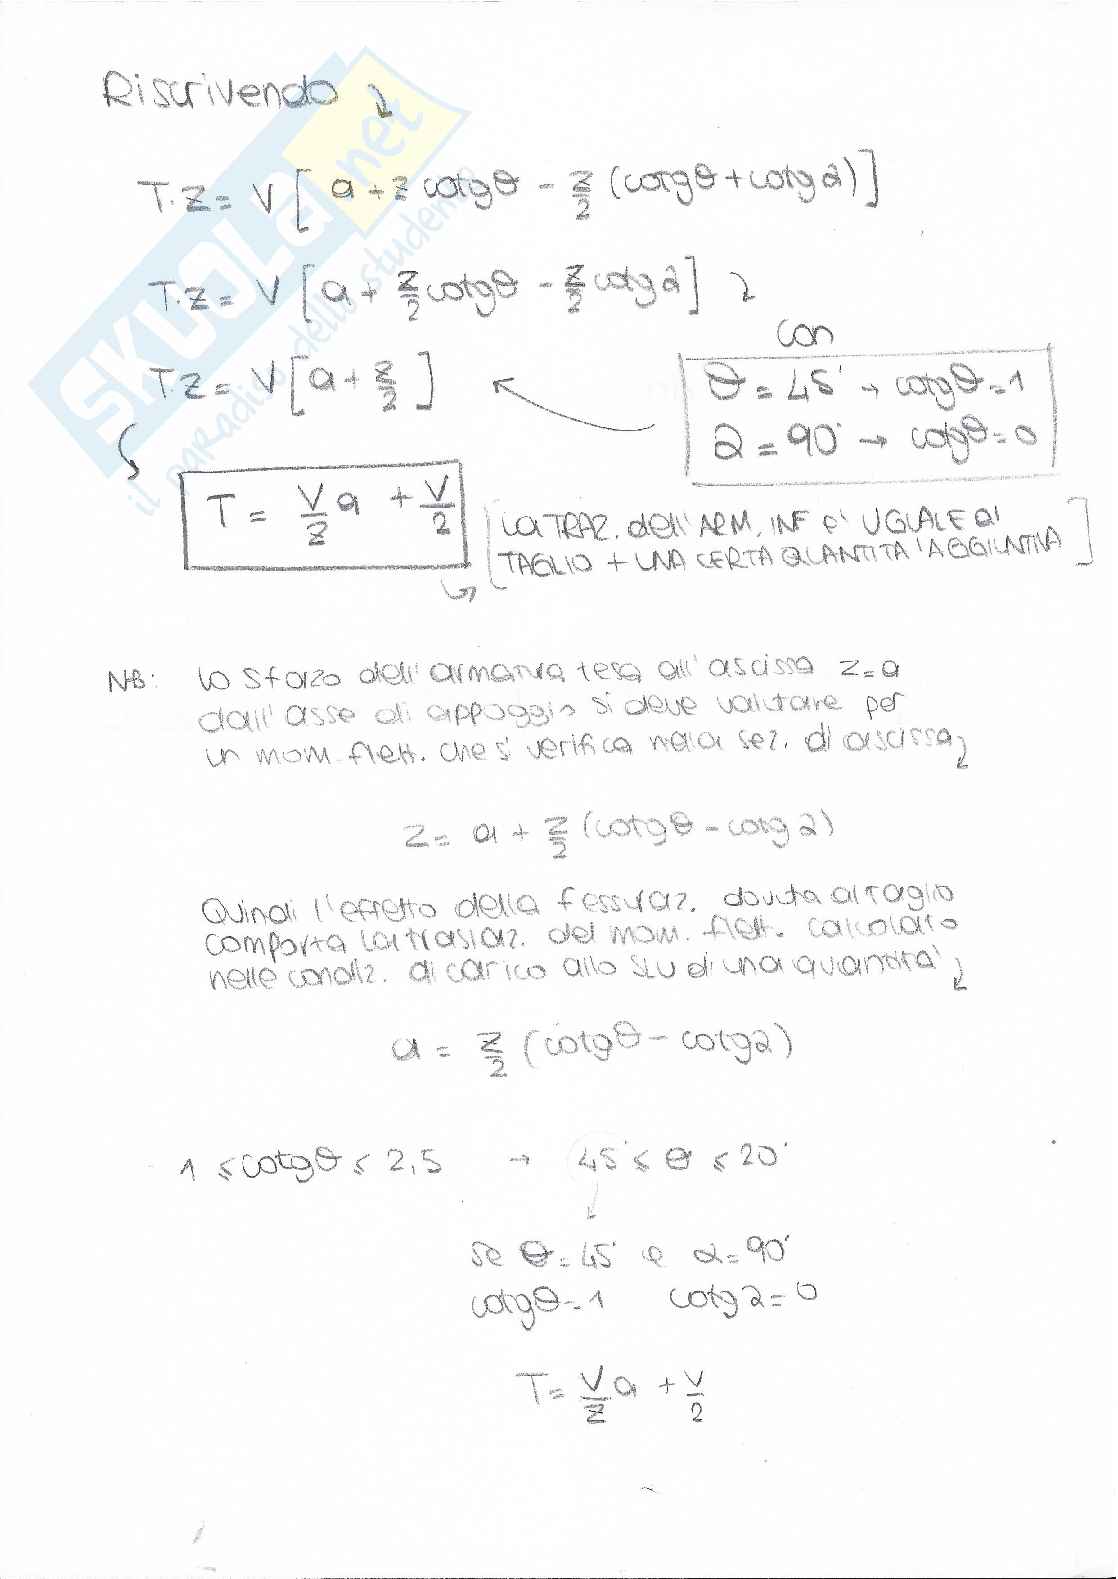 Riscrivendo ↴
T·z = V [ a + z cotgθ - z/2 (cotgθ + cotgα) ]
T·z = V [ a + z/2 cotgθ - z/2 cotgα ] ↴
con
T·z = V [ a + z/2 ]
θ = 45° → cotgθ = 1
α = 90° → cotgθ = 0
T = V/z a + V/2
[ LA TRAZ. dell'ARM. INF è UGUALE al
TAGLIO + UNA CERTA QUANTITA' AGGIUNTIVA ]
NB: lo sforzo dell'armatura tesa all'ascissa z=a
dall'asse di appoggio si deve valutare per
un mom. flett. che si verifica nella sez. di ascissa ↴
z = a + z/2 (cotgθ - cotgα)
Quindi l'effetto della fessuraz. dovuta al taglio
comporta la traslaz. del mom. flett. calcolato
nelle condiz. di carico allo SLU di una quantità ↴
a = z/2 (cotgθ - cotgα)
1 ≤ cotgθ ≤ 2,5 → 45° ≤ θ ≤ 20°
se θ = 45° e α = 90°
cotgθ = 1 cotgα = 0
T = V/z a + V/2
SKUOLA.net
il paradiso dello studente